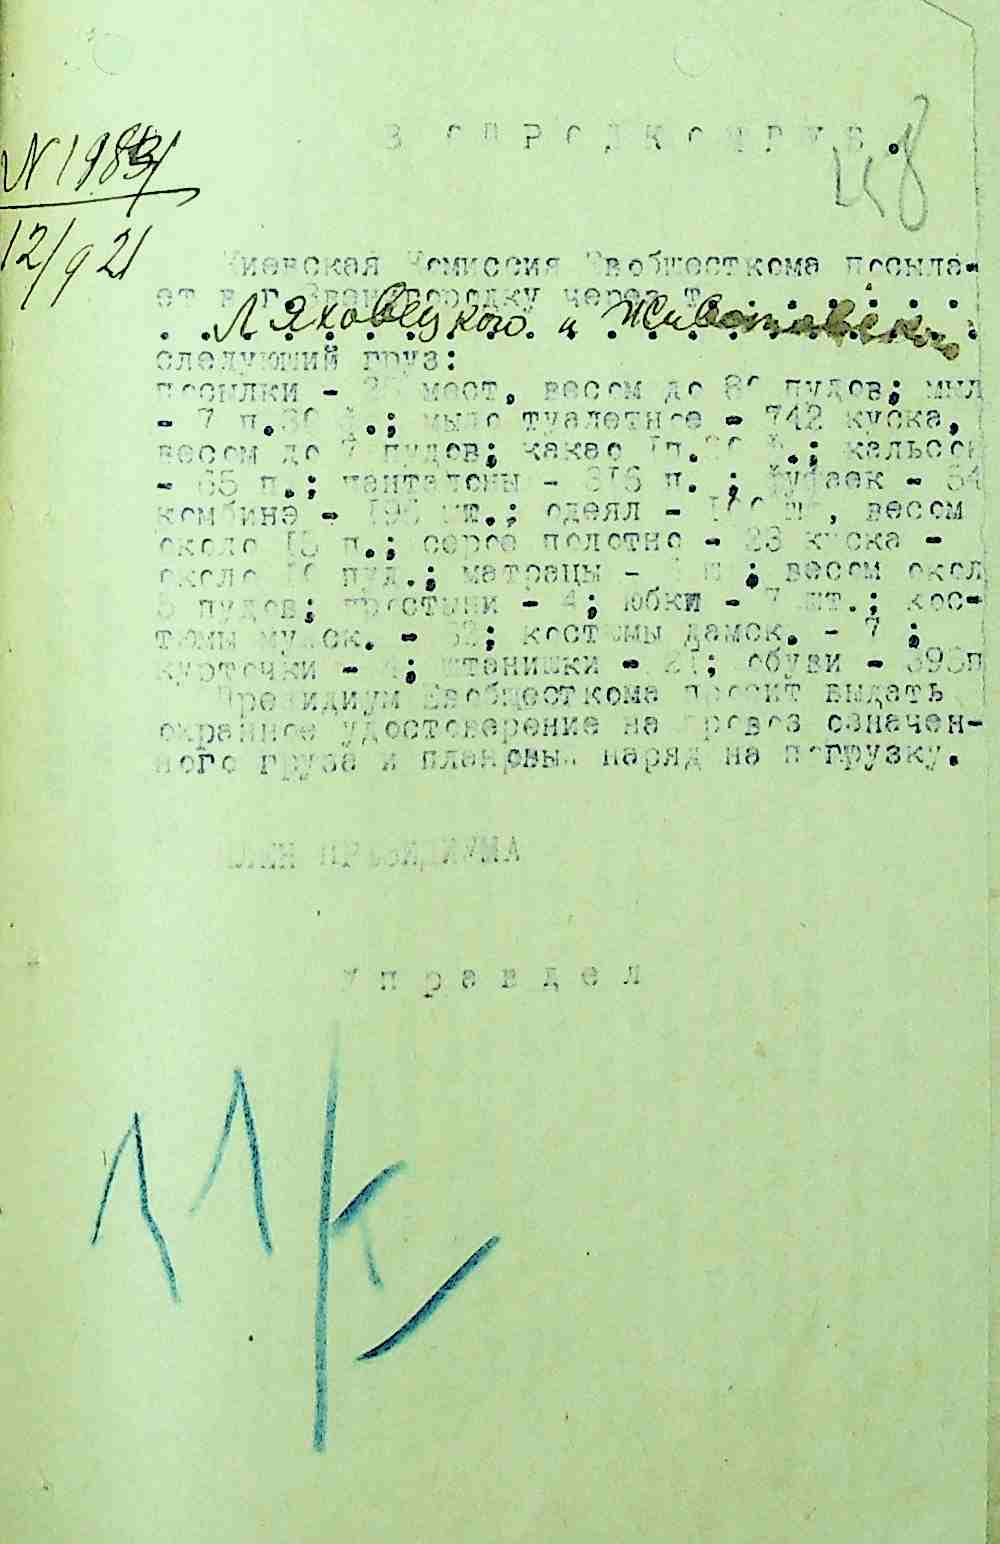 В ОПРОДКОМГУБ.
148
N 1983/
12/9 21
Киевская Комиссия Евобщесткома посыла-
ет в г. Звенигородку через т.
Ляховецкого и Животовского
следующий груз:
посылки - мест, весом до 80 пудов; мыл
- 7 п. мыло туалетное - 742 куска,
весом до 7 пудов; какао кальсон
- 65 п.; панталоны - 316 п.; фуфаек - 54
комбинэ - 196 шт.; одеял - весом
около 15 п.; серое полотно - 23 куска -
около пуд.; матрацы - весом окол
5 пудов; простыни - 4; юбки - 7 шт.; кос-
тюмы мужск. - 32; костюмы дамск. - 7;
курточки - штанишки - 21; обуви - 393п
Президиум Евобщесткома просит выдать
охранное удостоверение на провоз означен-
ного груза и плановый наряд на погрузку.
ЧЛЕН ПРЕЗИДИУМА
Управдел